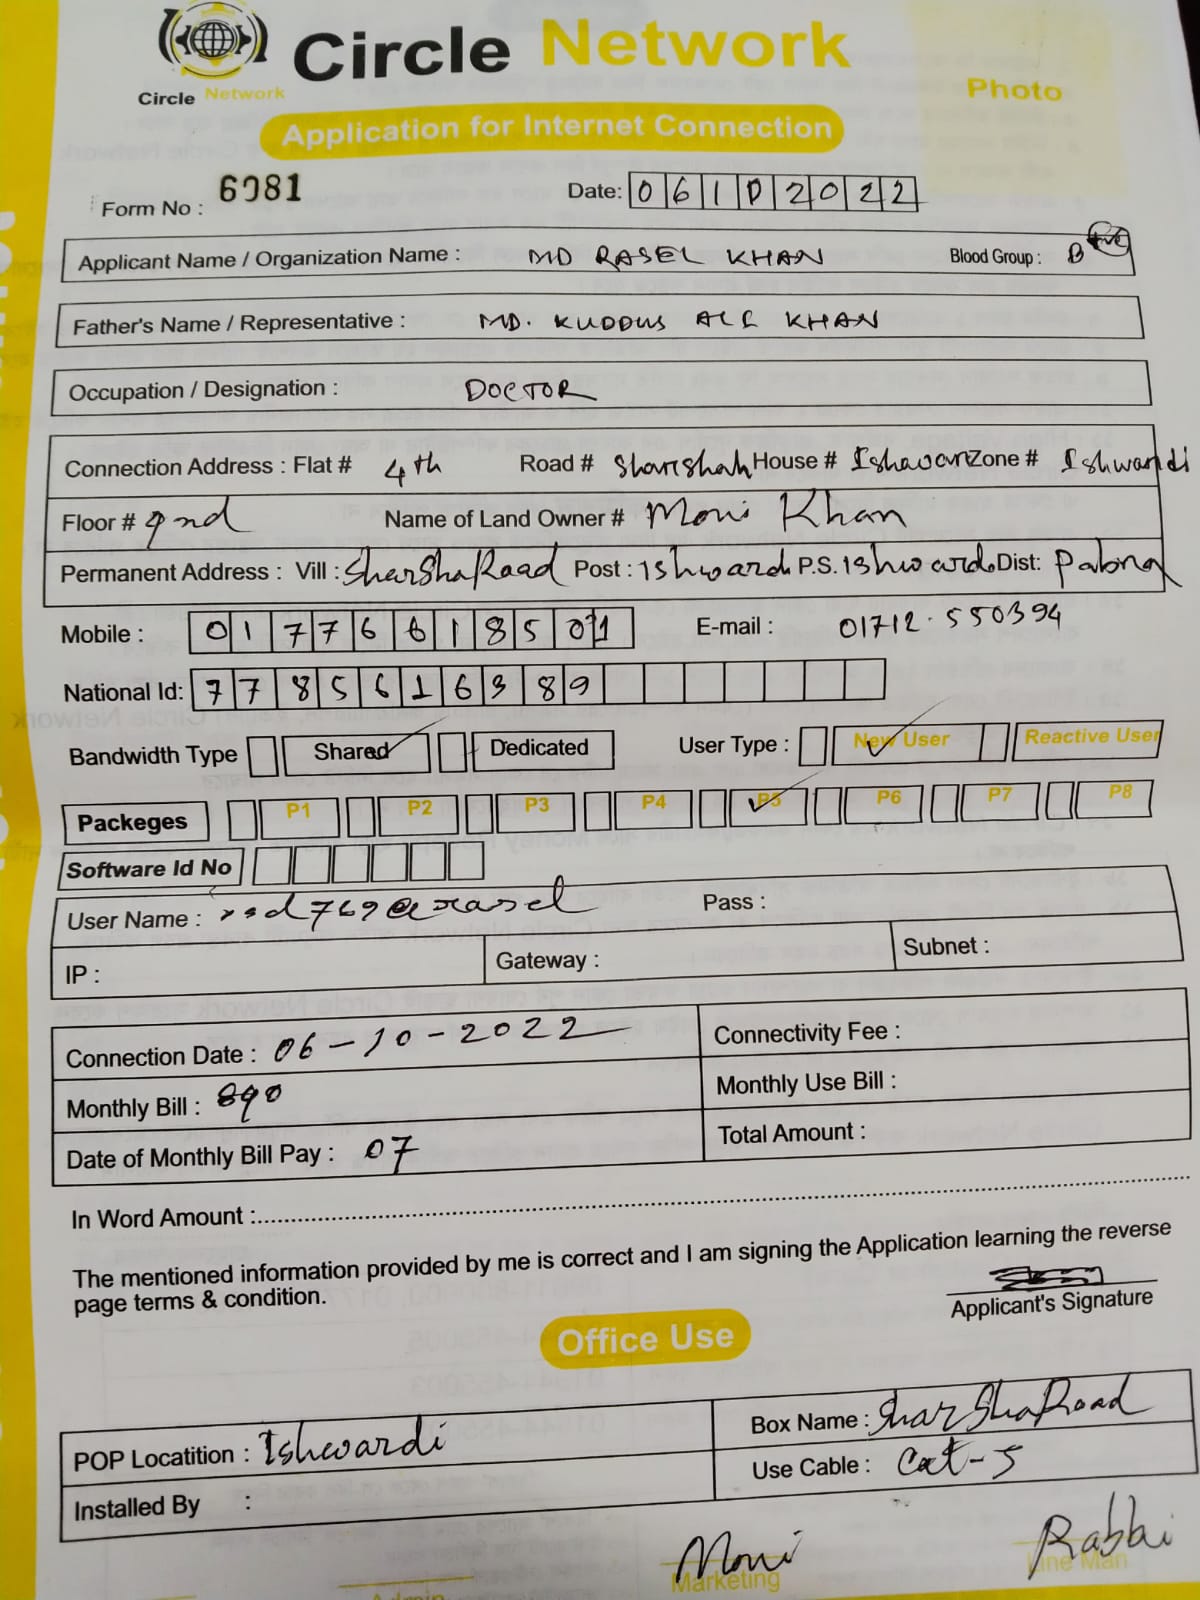 Circle Network
Circle Network
Photo
Application for Internet Connection
Form No : 6981
Date: 06102022
Applicant Name / Organization Name : MD RASEL KHAN Blood Group : B +ve
Father's Name / Representative : MD. KUDDUS ALI KHAN
Occupation / Designation : DOCTOR
Connection Address : Flat # 4th Road # Sharshah House # Zone # Ishwardi
Floor # 2nd Name of Land Owner # Moni Khan
Permanent Address : Vill : SharSha Road Post : Ishwardi P.S. Ishwardi Dist: Pabna
Mobile : 0177661850 E-mail : 01712-550394
National Id: 7785616389
Bandwidth Type Shared Dedicated User Type : New User Reactive User
Packeges P1 P2 P3 P4 P5 P6 P7 P8
Software Id No
User Name : Pass :
IP : Gateway : Subnet :
Connection Date : 06-10-2022 Connectivity Fee :
Monthly Bill : 890 Monthly Use Bill :
Date of Monthly Bill Pay : 07 Total Amount :
In Word Amount :
The mentioned information provided by me is correct and I am signing the Application learning the reverse
page terms & condition.
Applicant's Signature
Office Use
POP Locatition : Ishwardi Box Name : SharSha Road
Installed By : Use Cable : Cat-5
Moni Rabbi
Admin Marketing Line Man